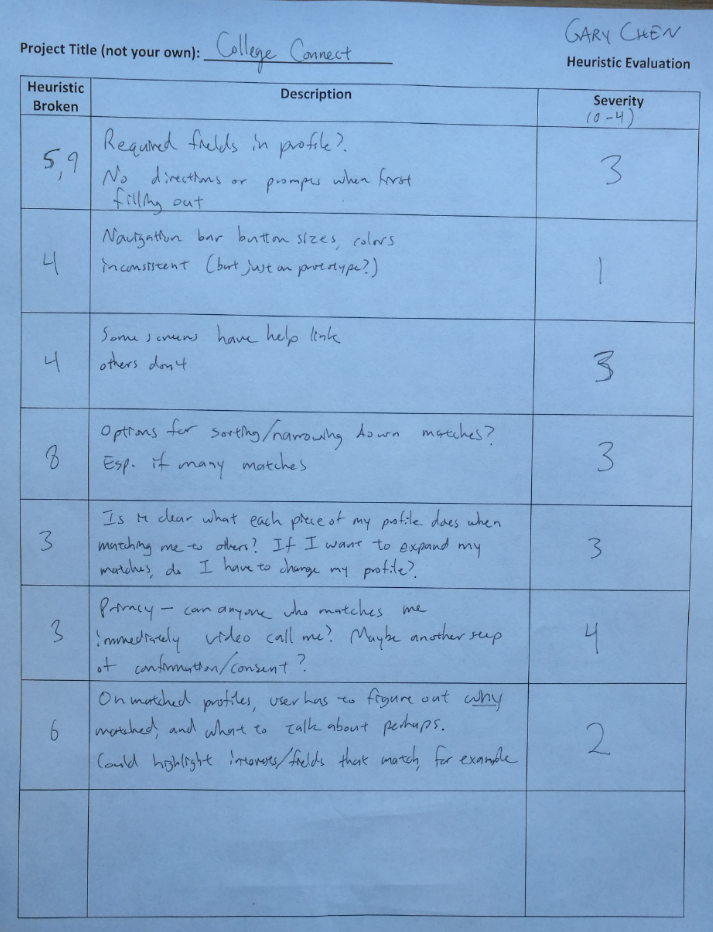 GARY CHEN
Project Title (not your own): College Connect
Heuristic Evaluation
Heuristic Broken
Description
Severity
(0-4)
5,9
Required fields in profile?
No directions or prompts when first
filling out
3
4
Navigation bar button sizes, colors
inconsistent (but just on prototype?)
1
4
Some screens have help link
others don't
3
8
Options for sorting/narrowing down matches?
Esp. if many matches
3
3
Is it clear what each piece of my profile does when
matching me to others? If I want to expand my
matches, do I have to change my profile?
3
3
Privacy - can anyone who matches me
immediately video call me? Maybe another step
of confirmation/consent?
4
6
On matched profiles, user has to figure out why
matched, and what to talk about perhaps.
Could highlight interests/fields that match, for example
2